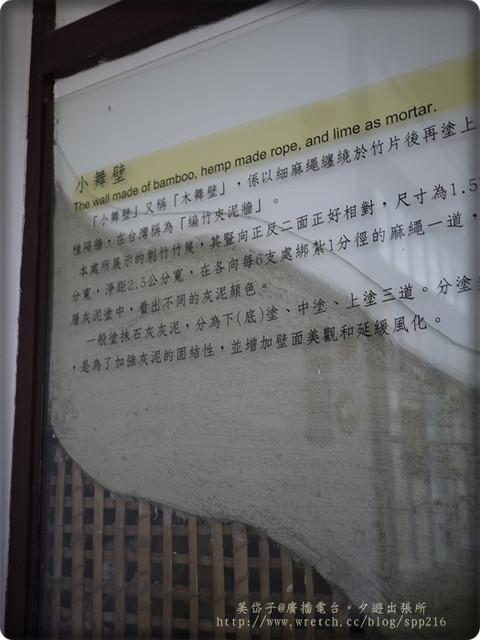 小舞壁
The wall made of bamboo, hemp made rope, and lime as mortar.
「小舞壁」又稱「木舞壁」，係以細麻繩纏繞於竹片後再塗上
種隔牆，在台灣稱為「編竹夾泥牆」。
本處所展示的剖竹竹篾，其豎向正反二面正好相對，尺寸為1.5
分寬，淨距2.5公分寬，在各向每6支處綁紮1分徑的麻繩一道，
層灰泥塗中，看出不同的灰泥顏色。
一般塗抹石灰灰泥，分為下(底)塗、中塗、上塗三道。分塗
，是為了加強灰泥的固結性，並增加壁面美觀和延緩風化。
美岱子@廣播電台。夕遊出張所
http://www.wretch.cc/blog/spp216